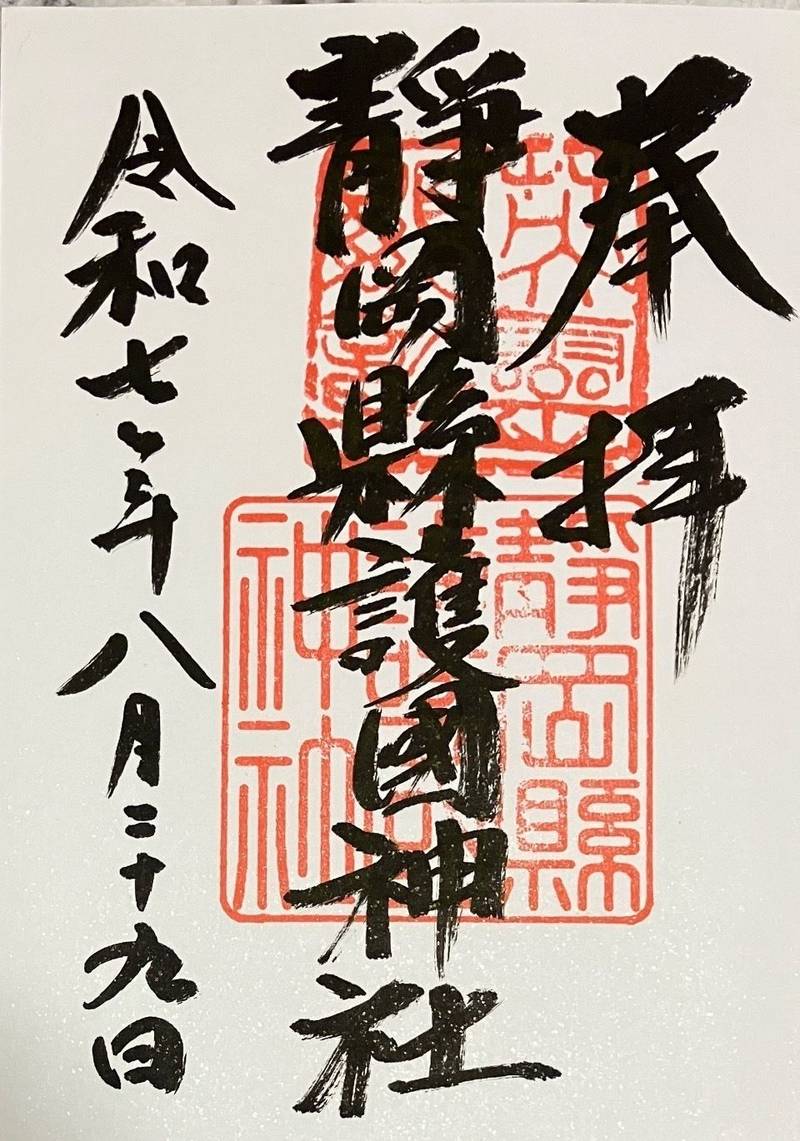 奉拝
靜岡縣護國神社
令和七年八月二十九日
靜岡縣
護國
神社